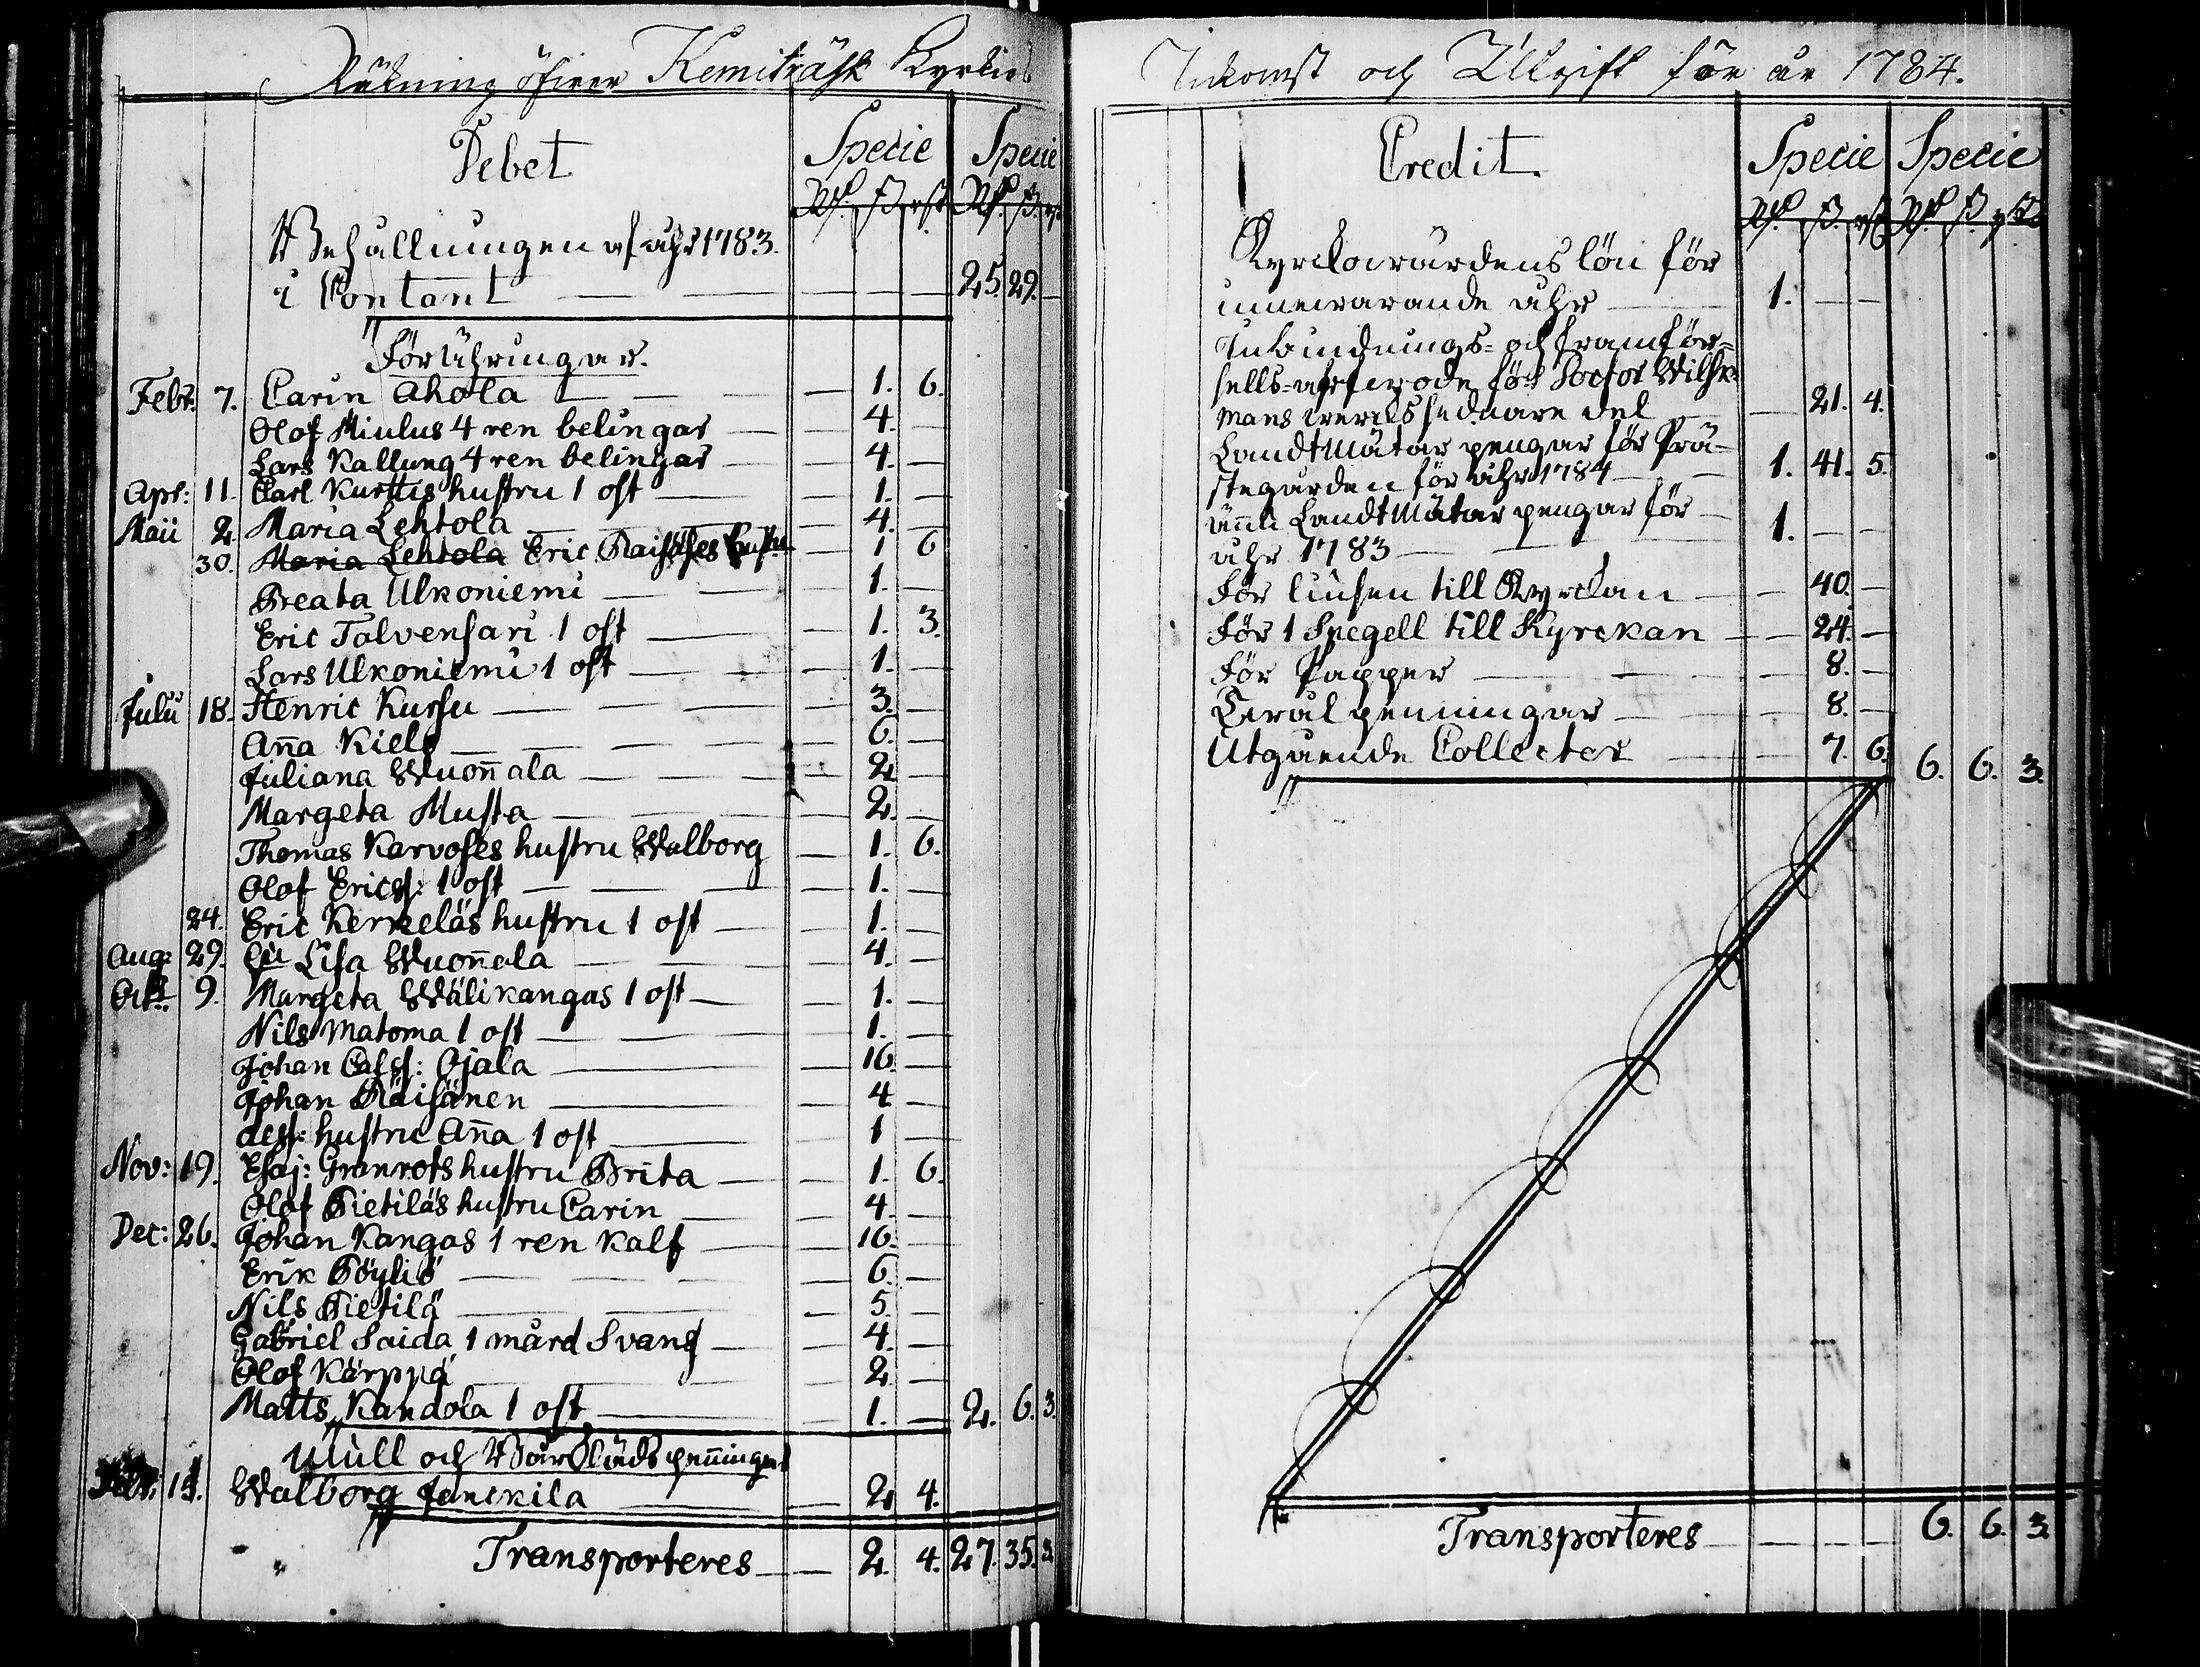 Räkning öfwer Kemiträsk Kyrkios
Debet
Specie Specie
Rd. ß. rst. Rd. ß. rst.
Behållningen af åhr 1783.
i Contant — — — 25. 29. —
Förähringar.
Febr: 7. Carin Ahola — 1. 6.
Olof Miulus 4 ren belingar — 4. —
Lars Kallung 4 ren belingar — 4. —
Apr: 11. Carl Kurttis hustru 1 ost — 1. —
Maii 2. Maria Lehtola — 4. —
30. Maria Lehtola Eric Raisases hustru — 1 6
Beata Ulkoniemi — 1. —
Eric Talvensari 1 ost — 1. 3.
Lars Ulkoniemi 1 ost — 1. —
Julii 18. Henric Kursu — 3. —
Anna Kielo — 6. —
Juliana Wuonnala — 2 —
Margeta Musta — 2. —
Thomas Karvoses hustru Walborg — 1. 6.
Olof Ericss: 1 ost — 1. —
24. Eric Kerkeläs hustru 1 ost — 1. —
Aug: 29. Lisa Wuonnala — 4. —
Oct: 9. Margeta Wälikangas 1 ost — 1. —
Nils Matoma 1 ost — 1. —
Johan Ojala — 16. —
Johan Räisänen — 4 —
dess: hustru Anna 1 ost — 1 —
Nov: 19. Esaj: Granrots hustru Brita — 1. 6.
Olof Pietiläs hustru Carin — 4. —
Dec: 26. Johan Kangas 1 ren kalf — 16. —
Erik Pöyliö — 6. —
Nils Pietilä — 5. —
Gabriel Saida 1 mård Svans — 4. —
Olof Kärppä — 2. —
Matts Kandola 1 ost — 1. — 2. 6. 3.
Mull och Bårklädspenningar
Walborg Janckila — 2 4.
Transporteres — 2. 4. 27. 35. 3.
Inkomst och Utgift för år 1784.
Credit.
Specie Specie
Rd. ß. rst. Rd. ß. rst.
Kyrckowärdens lön för
innewarande åhr — 1. — —
Inbindnings- och framför-
sells- för Doctor Wilsk-
mans wercks sednare del — 21. 4.
Landtmätar pengar för Prä-
stegården för åhr 1784 — 1. 41. 5.
Landtmätar pengar för
åhr 1783 — 1. — —
För liusen till Kyrckan — 40. —
För 1 Spegell till Kyrckan — 24. —
För Papper — 8. —
penningar — 8. —
Utgående Collecter — 7. 6. 6. 6. 3.
Transporteres — 6. 6. 3